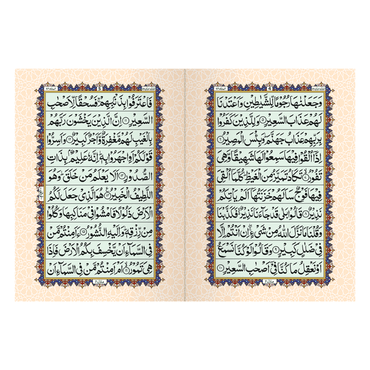 وَجَعَلْنٰهَا رُجُوْمًا لِّلشَّيٰطِيْنِ وَاَعْتَدْنَا
لَهُمْ عَذَابَ السَّعِيْرِ ۝ وَلِلَّذِيْنَ كَفَرُوْا
بِرَبِّهِمْ عَذَابُ جَهَنَّمَ وَبِئْسَ الْمَصِيْرُ ۝
اِذَآ اُلْقُوْا فِيْهَا سَمِعُوْا لَهَا شَهِيْقًا وَّهِيَ
تَفُوْرُ ۝ تَكَادُ تَمَيَّزُ مِنَ الْغَيْظِ كُلَّمَآ اُلْقِيَ
فِيْهَا فَوْجٌ سَاَلَهُمْ خَزَنَتُهَآ اَلَمْ يَاْتِكُمْ
نَذِيْرٌ ۝ قَالُوْا بَلٰى قَدْ جَآءَنَا نَذِيْرٌ فَكَذَّبْنَا
وَقُلْنَا مَا نَزَّلَ اللّٰهُ مِنْ شَيْءٍ اِنْ اَنْتُمْ اِلَّا
فِيْ ضَلٰلٍ كَبِيْرٍ ۝ وَقَالُوْا لَوْ كُنَّا نَسْمَعُ
اَوْ نَعْقِلُ مَا كُنَّا فِيْٓ اَصْحٰبِ السَّعِيْرِ ۝
فَاعْتَرَفُوْا بِذَنْبِهِمْ فَسُحْقًا لِّاَصْحٰبِ
السَّعِيْرِ ۝ اِنَّ الَّذِيْنَ يَخْشَوْنَ رَبَّهُمْ
بِالْغَيْبِ لَهُمْ مَّغْفِرَةٌ وَّاَجْرٌ كَبِيْرٌ ۝ وَاَسِرُّوْا
قَوْلَكُمْ اَوِ اجْهَرُوْا بِهٖ اِنَّهٗ عَلِيْمٌۢ بِذَاتِ
الصُّدُوْرِ ۝ اَلَا يَعْلَمُ مَنْ خَلَقَ وَهُوَ
اللَّطِيْفُ الْخَبِيْرُ ۝ هُوَ الَّذِيْ جَعَلَ لَكُمُ
الْاَرْضَ ذَلُوْلًا فَامْشُوْا فِيْ مَنَاكِبِهَا وَكُلُوْا
مِنْ رِّزْقِهٖ وَاِلَيْهِ النُّشُوْرُ ۝ ءَاَمِنْتُمْ مَّنْ
فِي السَّمَآءِ اَنْ يَّخْسِفَ بِكُمُ الْاَرْضَ فَاِذَا
هِيَ تَمُوْرُ ۝ اَمْ اَمِنْتُمْ مَّنْ فِي السَّمَآءِ اَنْ